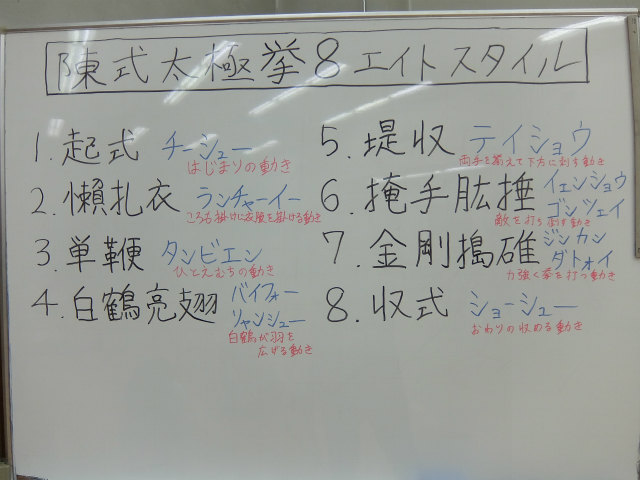 陳式太極拳8エイトスタイル
1. 起式 チーシュー
はじまりの動き
2. 懶扎衣 ランチャーイー
ころも掛けに衣服を掛ける動き
3. 単鞭 タンビエン
ひとえむちの動き
4. 白鶴亮翅 バイフォーリャンシュー
白鶴が羽を
広げる動き
5. 堤収 テイショウ
両手を揃えて下方に刺す動き
6. 掩手肱捶 イェンショウ
ゴンツェイ
敵を打ち倒す動き
7. 金剛搗碓 ジンカン
ダトォイ
力強く拳を打つ動き
8. 収式 ショーシュー
おわりの収める動き